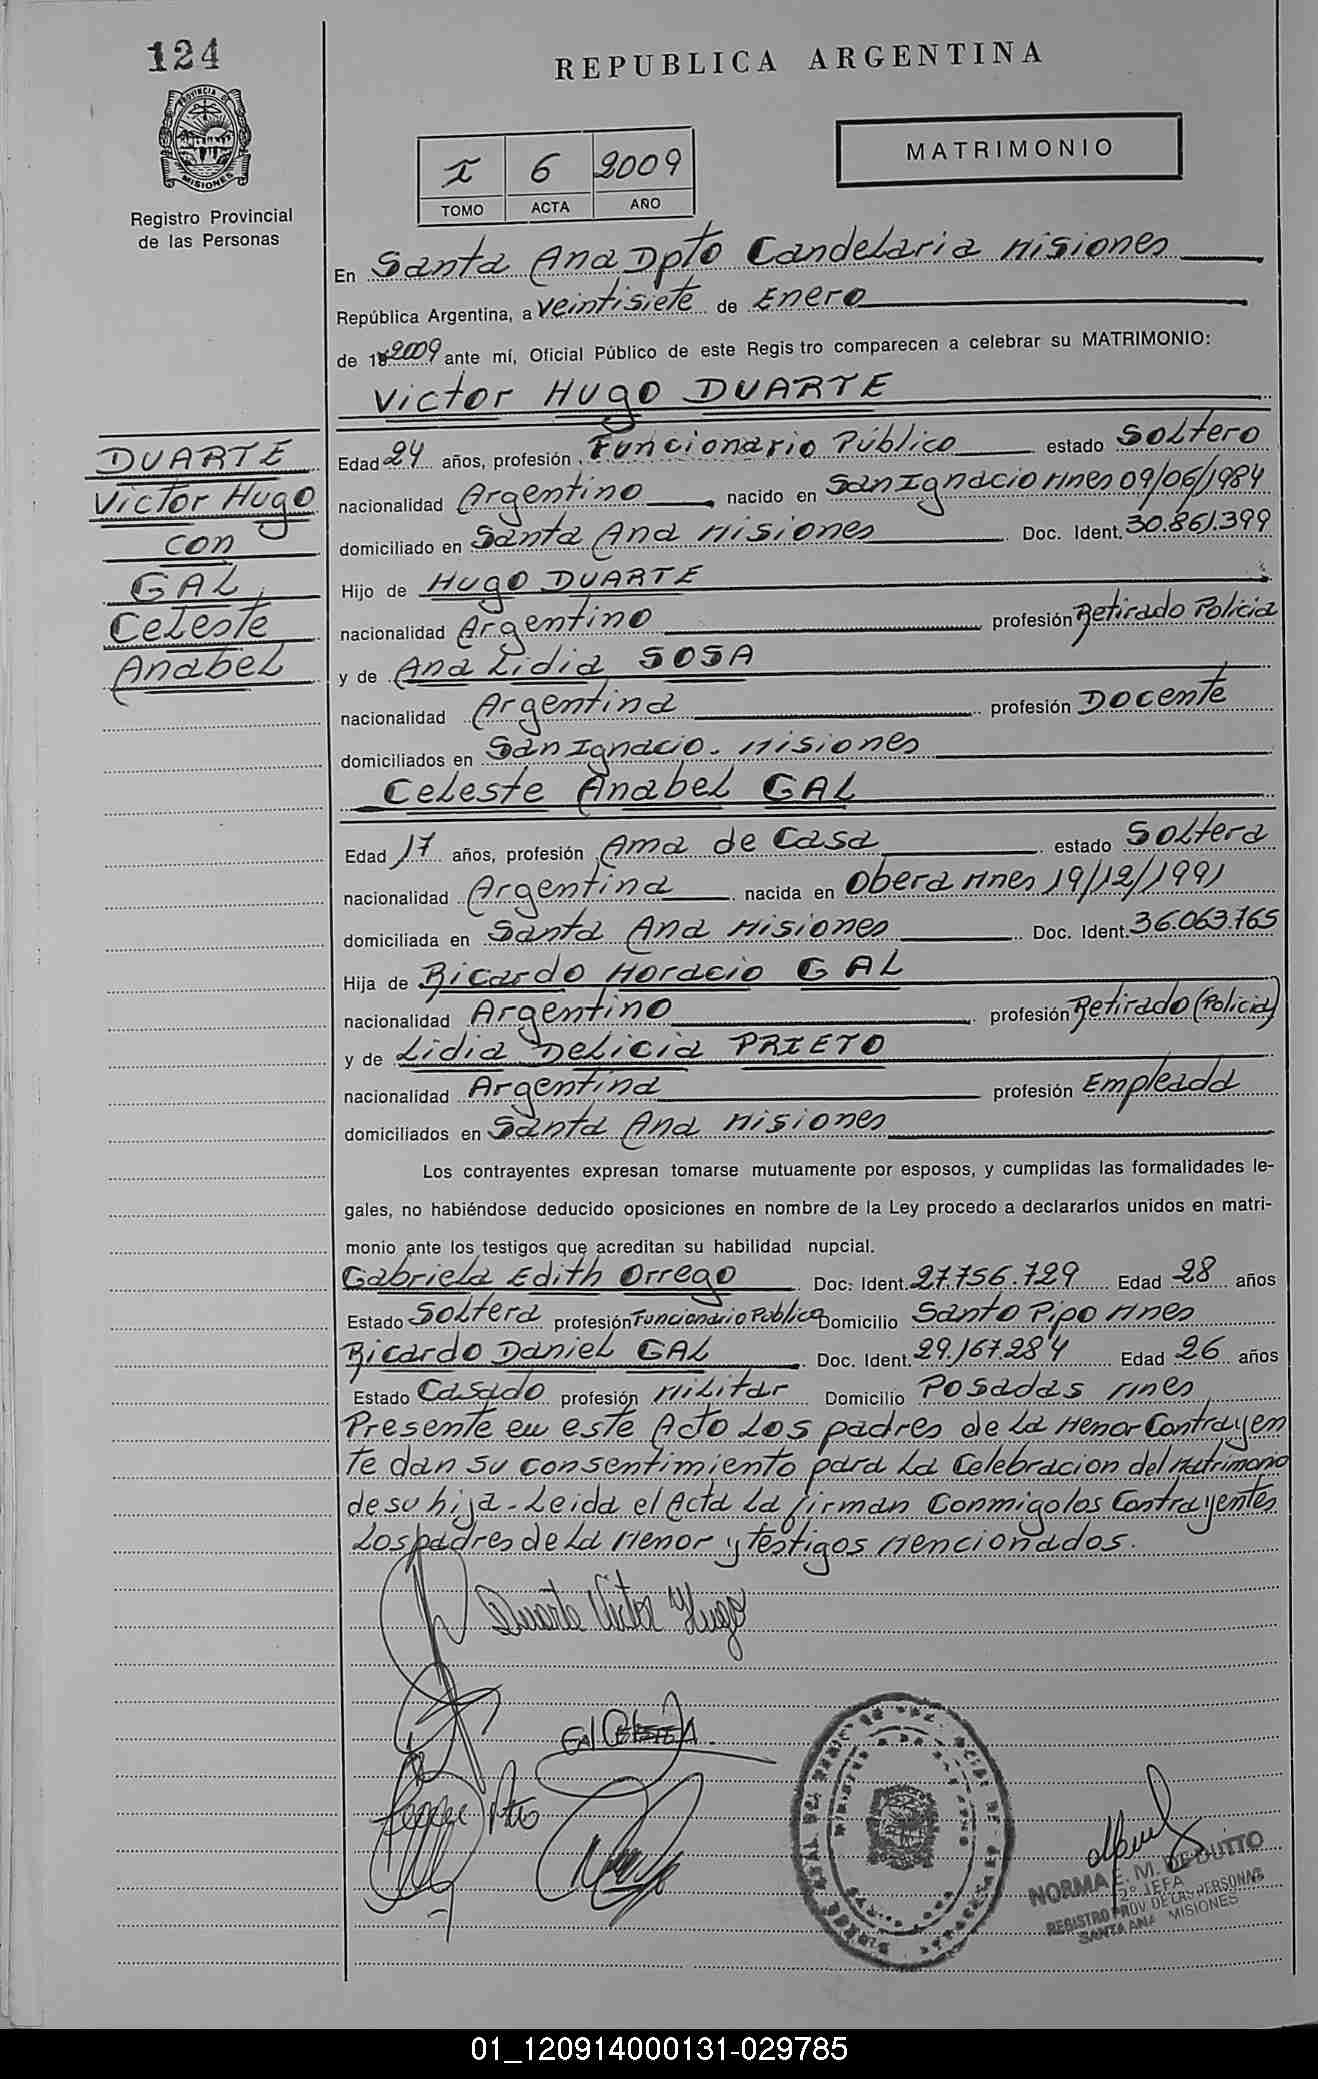 124
REPUBLICA ARGENTINA
PROVINCIA DE
MISIONES
Registro Provincial
de las Personas
MATRIMONIO
I 6 2009
TOMO ACTA AÑO
En Santa Ana Dpto Candelaria Misiones
República Argentina, a veintisiete de Enero
de 2009 ante mí, Oficial Público de este Regis tro comparecen a celebrar su MATRIMONIO:
Victor Hugo DUARTE
DUARTE
Victor Hugo
con
GAL,
Celeste
Anabel
Edad 24 años, profesión Funcionario Público estado Soltero
nacionalidad Argentino nacido en San Ignacio Mnes 09/06/1984
domiciliado en Santa Ana Misiones Doc. Ident. 30.861.399
Hijo de Hugo DUARTE
nacionalidad Argentino profesión Retirado Policia
y de Ana Lidia SOSA
nacionalidad Argentina profesión Docente
domiciliados en San Ignacio - Misiones
Celeste Anabel GAL
Edad 17 años, profesión Ama de Casa estado Soltera
nacionalidad Argentina nacida en Obera Mnes 19/12/1991
domiciliada en Santa Ana Misiones Doc. Ident. 36.063.765
Hija de Ricardo Horacio GAL
nacionalidad Argentino profesión Retirado (Policia)
y de Lidia Delicia PRIETO
nacionalidad Argentina profesión Empleada
domiciliados en Santa Ana Misiones
Los contrayentes expresan tomarse mutuamente por esposos, y cumplidas las formalidades le-
gales, no habiéndose deducido oposiciones en nombre de la Ley procedo a declararlos unidos en matri-
monio ante los testigos que acreditan su habilidad nupcial.
Gabriela Edith Orrego Doc: Ident. 27.756.729 Edad 28 años
Estado Soltera profesión Funcionario Publico Domicilio Santo Pipo Mnes
Ricardo Daniel GAL Doc. Ident. 29.167.284 Edad 26 años
Estado Casado profesión Militar Domicilio Posadas Mnes
Presente en este Acto Los padres de la Menor Contrayen
te dan su consentimiento para la Celebracion del Matrimonio
de su hija - Leida el Acta la firman Conmigo los Contrayentes
Los padres de la Menor y testigos Mencionados.
Duarte Victor Hugo
NORMA E. M. DE DUTTO
2º JEFA
REGISTRO PROV DE LAS PERSONAS
SANTA ANA MISIONES
01_120914000131-029785